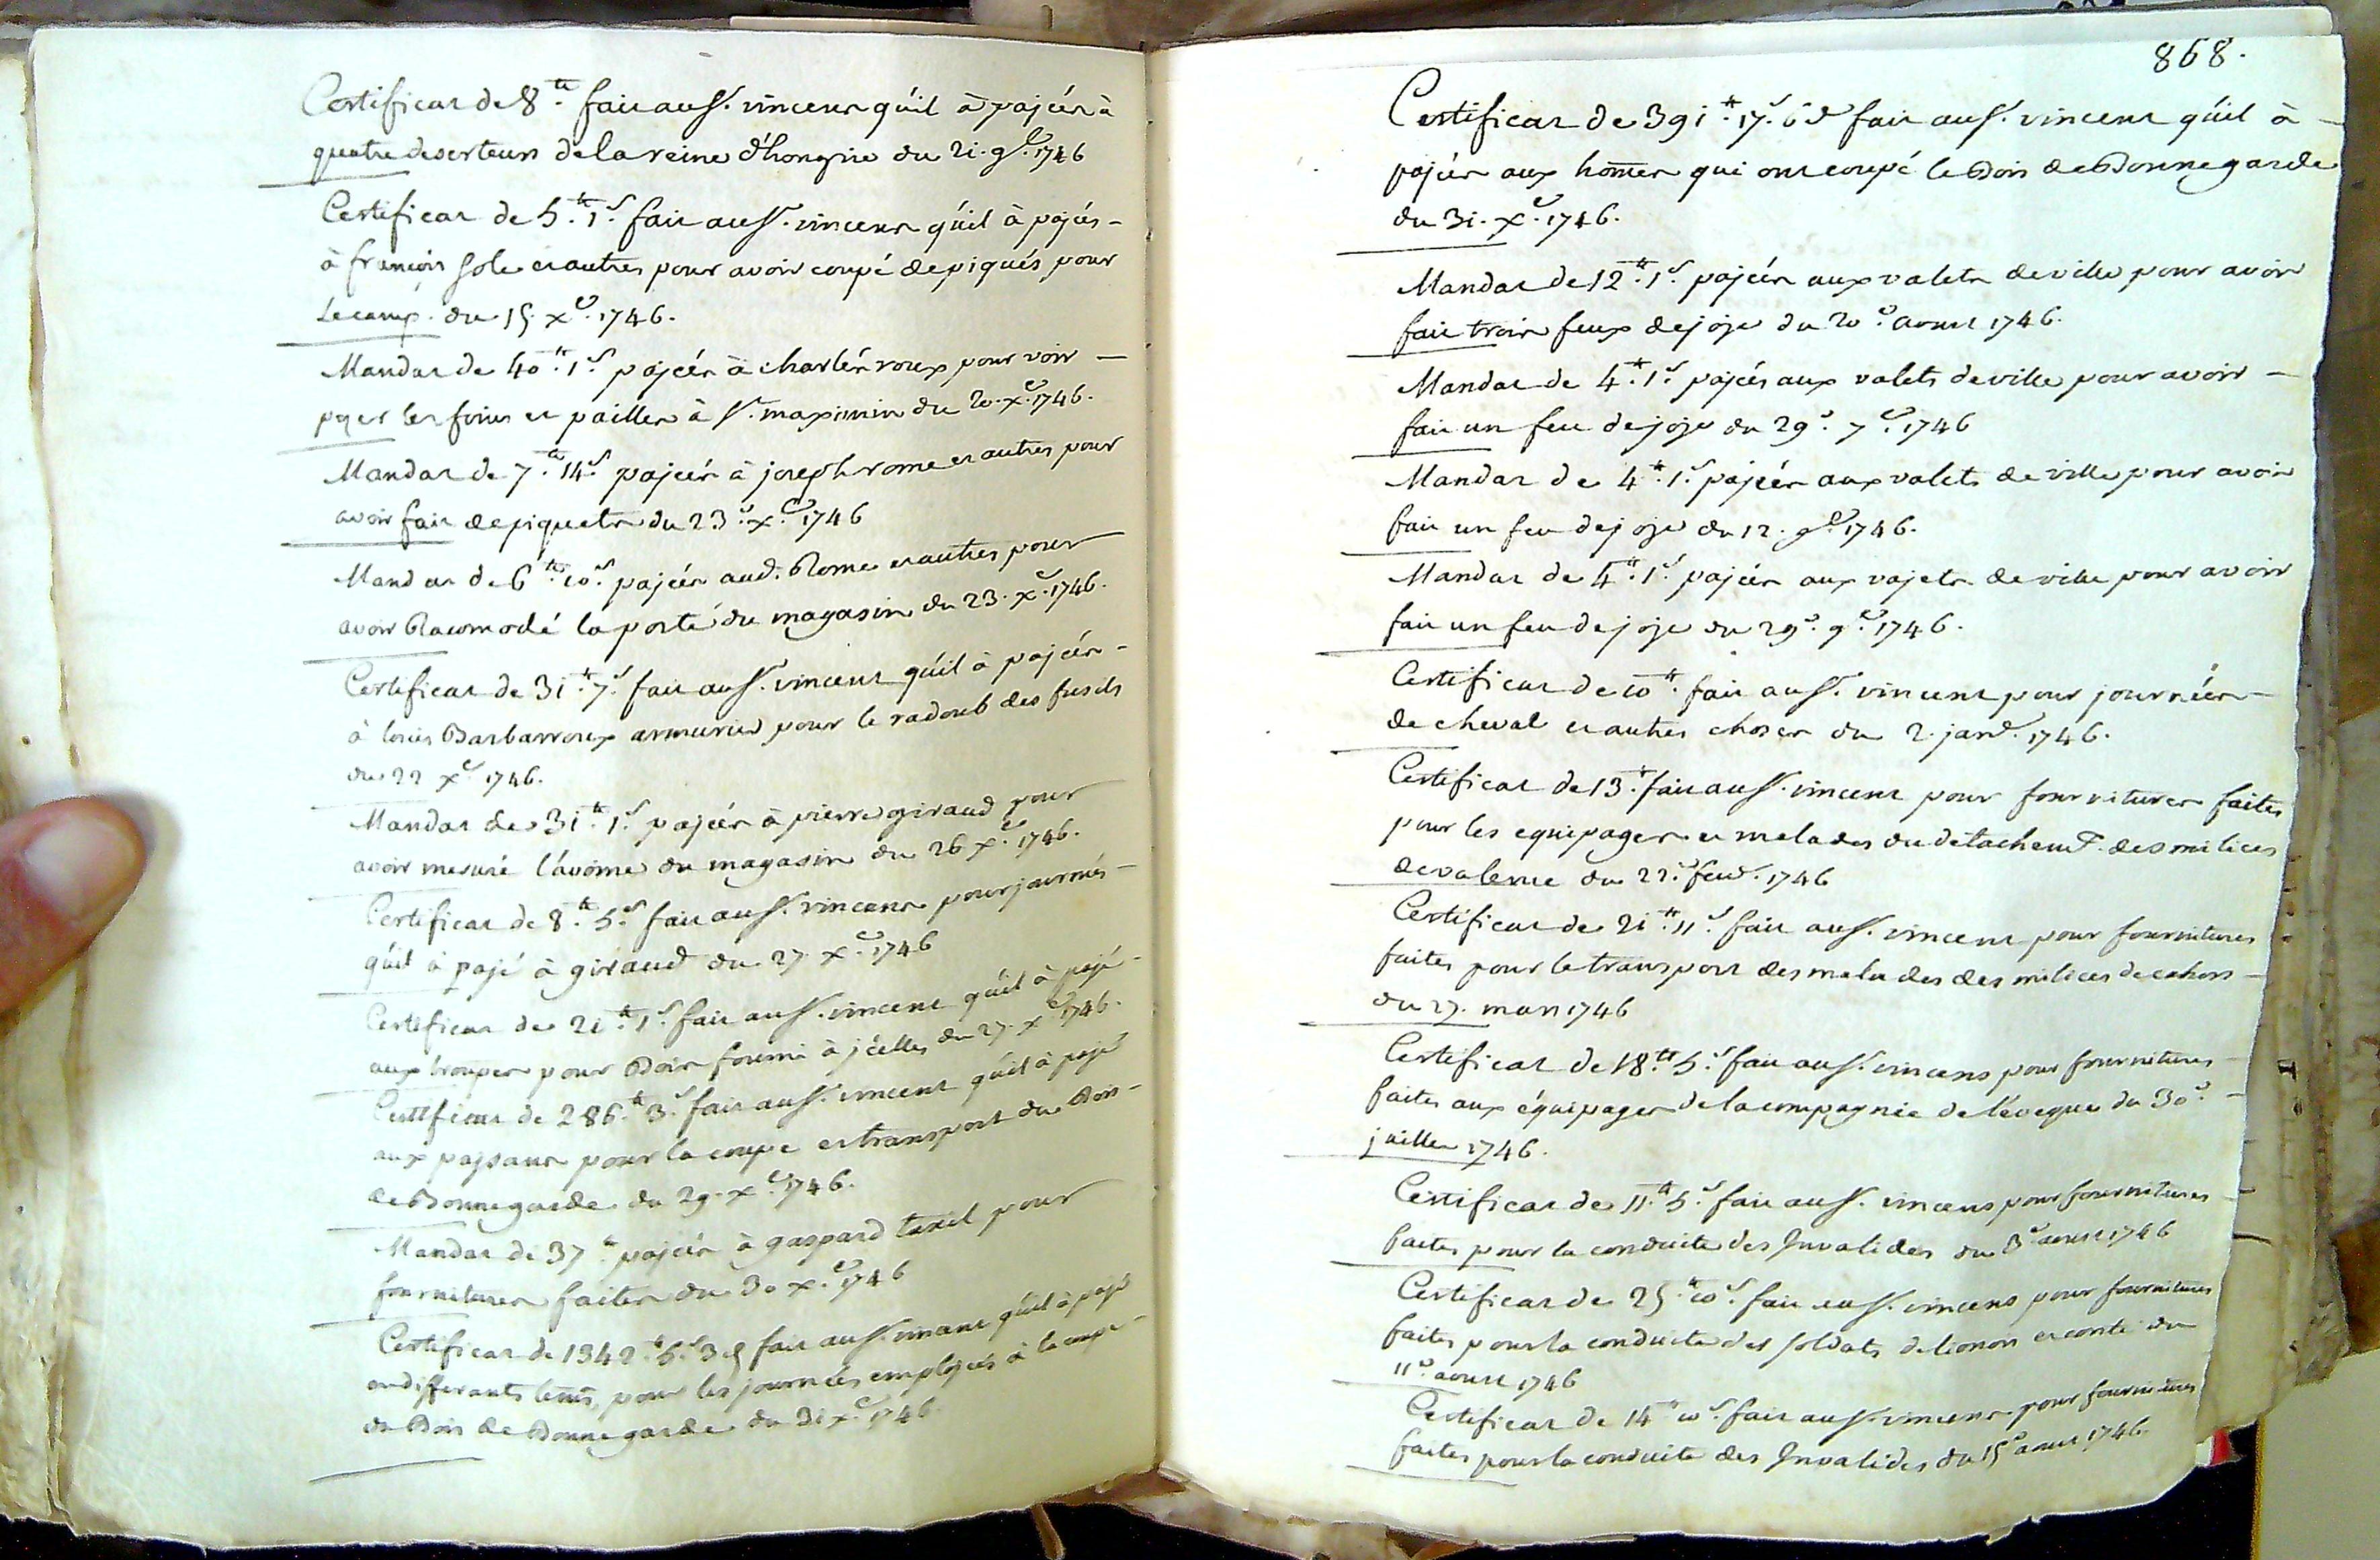 Certificat de 8.tt fait au sr. vincent qu'il à pajées à
quatre deserteurs de la reine d'hongrie du 21. 9e. 1746
Certificat de 5.tt 1.s fait au sr. vincent qu'il à pajés -
à francois sole et autres pour avoir coupé de piqués pour
Le camp. du 15. xe. 1746.
Mandat de 40.tt 1.s pajées à charles roux pour voir -
peyer les foins et pailles à St. maximin du 20. xe. 1746.
Mandat de 7.tt 14.s pajées à joseph rome et autres pour
avoir fait de piquets du 23e. xe. 1746
Mandat de 6.tt 10.s pajées aud. Rome et autres pour
avoir Racomodé la porte du magasin du 23. xe. 1746.
Certificat de 31.tt 7.s fait au sr. vincent qu'il à pajées -
à louis Barbarroux armurier pour le radoub des fusils
du 22 xe. 1746.
Mandat de 31.tt 1.s pajées à pierre giraud pour
avoir mesuré l'avoine du magasin du 26 xe. 1746.
Certificat de 8.tt 5.s fait au sr. vincent pour journés -
qu'il à pajé à giraud du 27. xe. 1746
Certificat de 21.tt 1.s fait au sr. vincent qu'il à pajé -
aux troupes pour Bois fourni à jcelles du 27. xe. 1746.
Certificat de 286.tt 3.s fait au sr. vincent qu'il à pajé
aux paysans pour la coupe et transport du Bois -
de Bonnegarde du 29. xe. 1746.
Mandat de 37.tt pajées à gaspard taxil pour
fournitures faites du 30 xe. 1746
Certificat de 1342.tt 6.s 3 d fait au sr. vincent qu'il à pajé
en differants tems, pour les journées emplojées à la coupe -
du Bois de Bonnegarde du 31 xe. 1746.
868.
Certificat de 391.tt 17.s 6 d fait au sr. vincent qu'il à -
pajées aux homes qui ont coupé le Bois de Bonnegarde
du 31. xe. 1746.
Mandat de 12.tt 1.s pajées aux valets de ville pour avoir
fait trois feux de joje du 20e. aoust 1746.
Mandat de 4.tt 1.s pajées aux valets de ville pour avoir -
fait un feu de joje du 29e. 7e. 1746
Mandat de 4.tt 1.s pajées aux valets de ville pour avoir
fait un feu de joje du 12. 9e. 1746.
Mandat de 4.tt 1.s pajées aux vajets de ville pour avoir
fait un feu de joje du 29e. 9e. 1746.
Certificat de 10.tt fait au sr. vincent pour journées -
de cheval et autres choses du 2. janv. 1746.
Certificat de 13.tt fait au sr. vincent pour fournitures faites
pour les equipages et malades du détachemt. des milices
de valence du 22.e fevr. 1746
Certificat de 21.tt 11.s fait au sr. vincent pour fournitures
faites pour le transport des malades des milices de cahors -
du 27. mars 1746
Certificat de 18.tt 5.s fait au sr. vincens pour fournitures -
faites aux équipages de la compagnie de l'éveque du 30e. -
juillet 1746.
Certificat de 11.tt 5.s fait au sr. vincens pour fournitures -
faites pour la conduite des Invalides du 3e aoust 1746
Certificat de 25.tt 10.s fait au sr. vincens pour fournitures
faites pour la conduite des soldats de lionois et conti du
11e. aoust 1746
Certificat de 14.tt 10.s fait au sr. vincens pour fournitures
faites pour la conduite des Invalides du 15e aoust 1746.